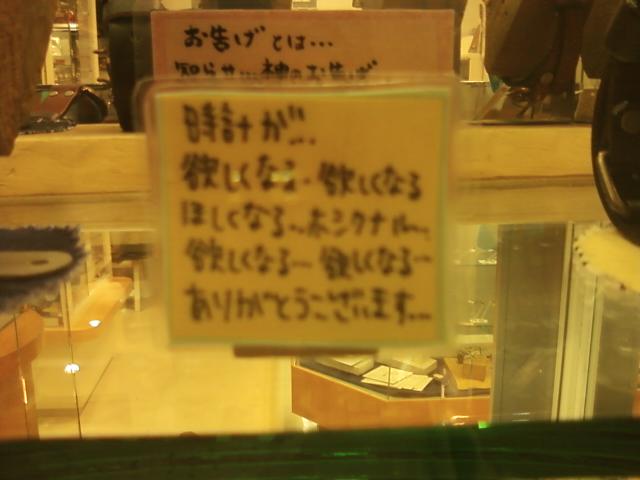 お告げとは…
知らせ…神のお告げ
時計が…
欲しくなる…欲しくなる
ほしくなる…ホシクナル…
欲しくなる…欲しくなる…
ありがとうございます…